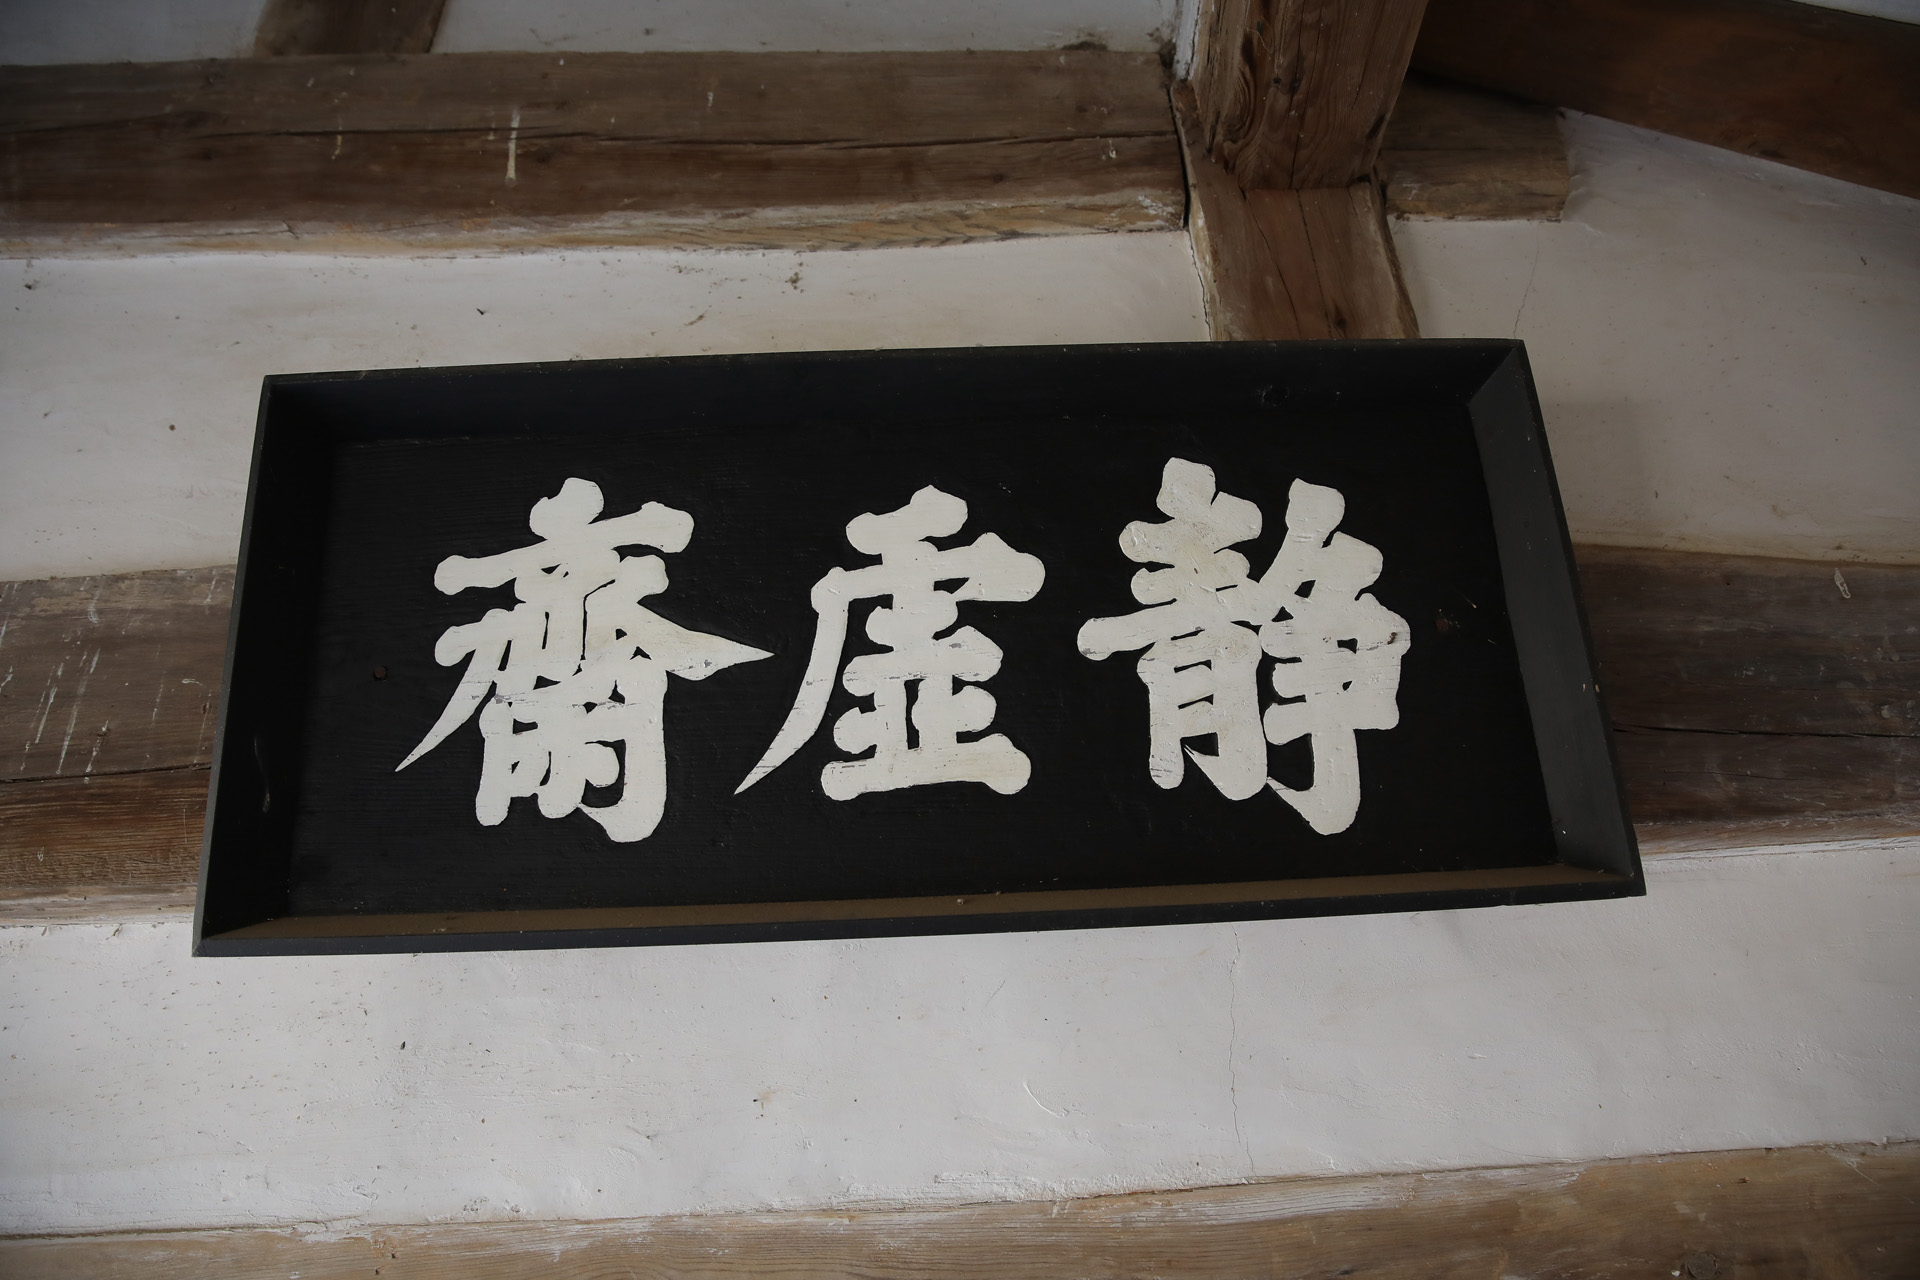 靜虛齋